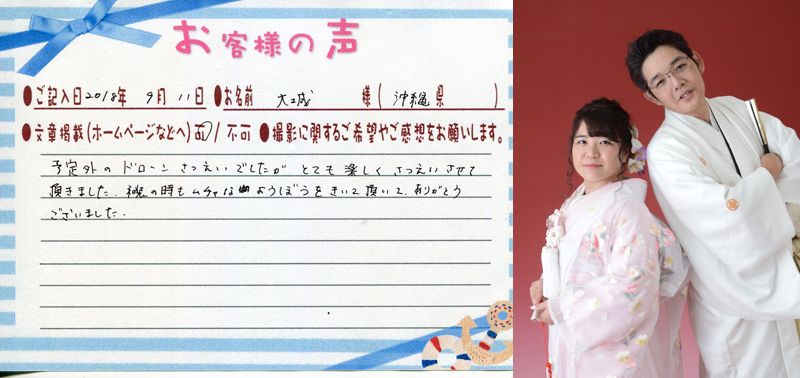 お客様の声
●ご記入日 2018年 9月 11日 ●お名前 大城 様(沖縄県 )
●文章掲載(ホームページなどへ) 可 / 不可 ●撮影に関するご希望やご感想をお願いします。
予定外のドローンさつえいでしたが とても楽しく さつえいさせて
頂きました。 の時もムチャな ようぼうをきいて頂いて、ありがとう
ございました。